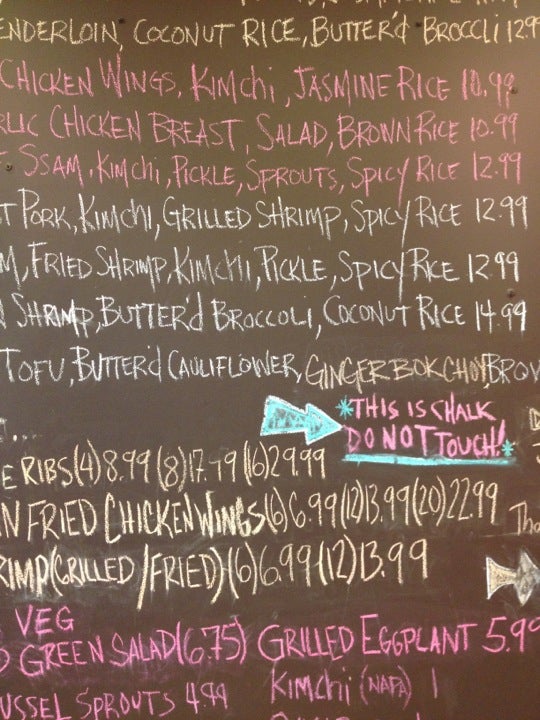 ENDERLOIN, COCONUT RICE, BUTTER'd BROCCLi 12.9
CHICKEN WINGS, KiMChi, JASMINE RICE 10.99
RLIC CHICKEN BREAST, SALAD, BROWN RICE 10.99
SSAM, KiMChi, PICKLE, SPROUTS, SPICY RICE 12.99
T PORK, KiMChi, GRILLED SHRIMP, SPICY RICE 12.99
M, FRIED SHRIMP, KiMChi, PICKLE, SPICY RICE 12.99
SHRIMP, BUTTER'd BROCCOLI, COCONUT RICE 14.99
TOFU, BUTTER'd CAULIFLOWER, GINGER BOK CHOY, BROW
*THIS IS CHALK
DO NOT TOUCH!*
E RIBS (4) 8.99 (8) 17.99 (16) 29.99
N FRIED CHICKEN WINGS (6) 6.99 (12) 13.99 (20) 22.99 Tha
RIMP (GRILLED/FRIED) (6) 6.99 (12) 13.99
VEG
GREEN SALAD (6.75) GRILLED EGGPLANT 5.99
USSEL SPROUTS 4.99 KiMChi (NAPA) 1